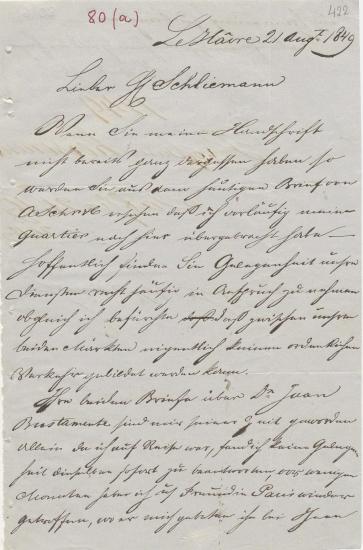 422
80 (a)
Le Hâvre 21 Augt. 1849
Lieber H Schliemann
Wenn Sie meine Handschrift
nicht bereits ganz vergessen haben so
werden Sie aus dem heutigen Brief von
ersehen daß ich vorläufig meine
Quartier nach hier übergebracht habe
Hoffentlich finden Sie Gelegenheit unsre
Diensten recht häufig in Anspruch zu nehmen
obgleich ich befürchte daß zwischen unsre
beiden Märkten eigentlich keinen ordentlichen
Verkehr gebildet werden kann.
Ihre beiden Briefe über Dn Juan
Bustamente sind mir seiner Z mit geworden
allein da ich auf Reise war, fand ich keine Gelegen
heit dieselben sofort zu beantworten vor wenigen
Monaten habe ich Freund in Paris wieder
getroffen, wo er mich gebeten ihn bei Ihnen